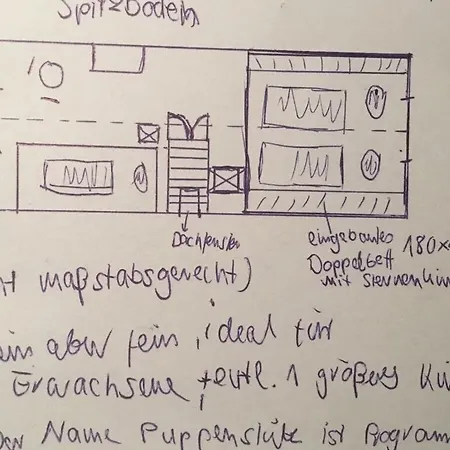 Spitzboden
Dachfenster
eingebautes
Doppelbett
180x
mit Sternenhim
maßstabsgerecht)
aber fein, ideal für
Erwachsene + evtl. 1 größeres
Der Name Puppenstube ist Program